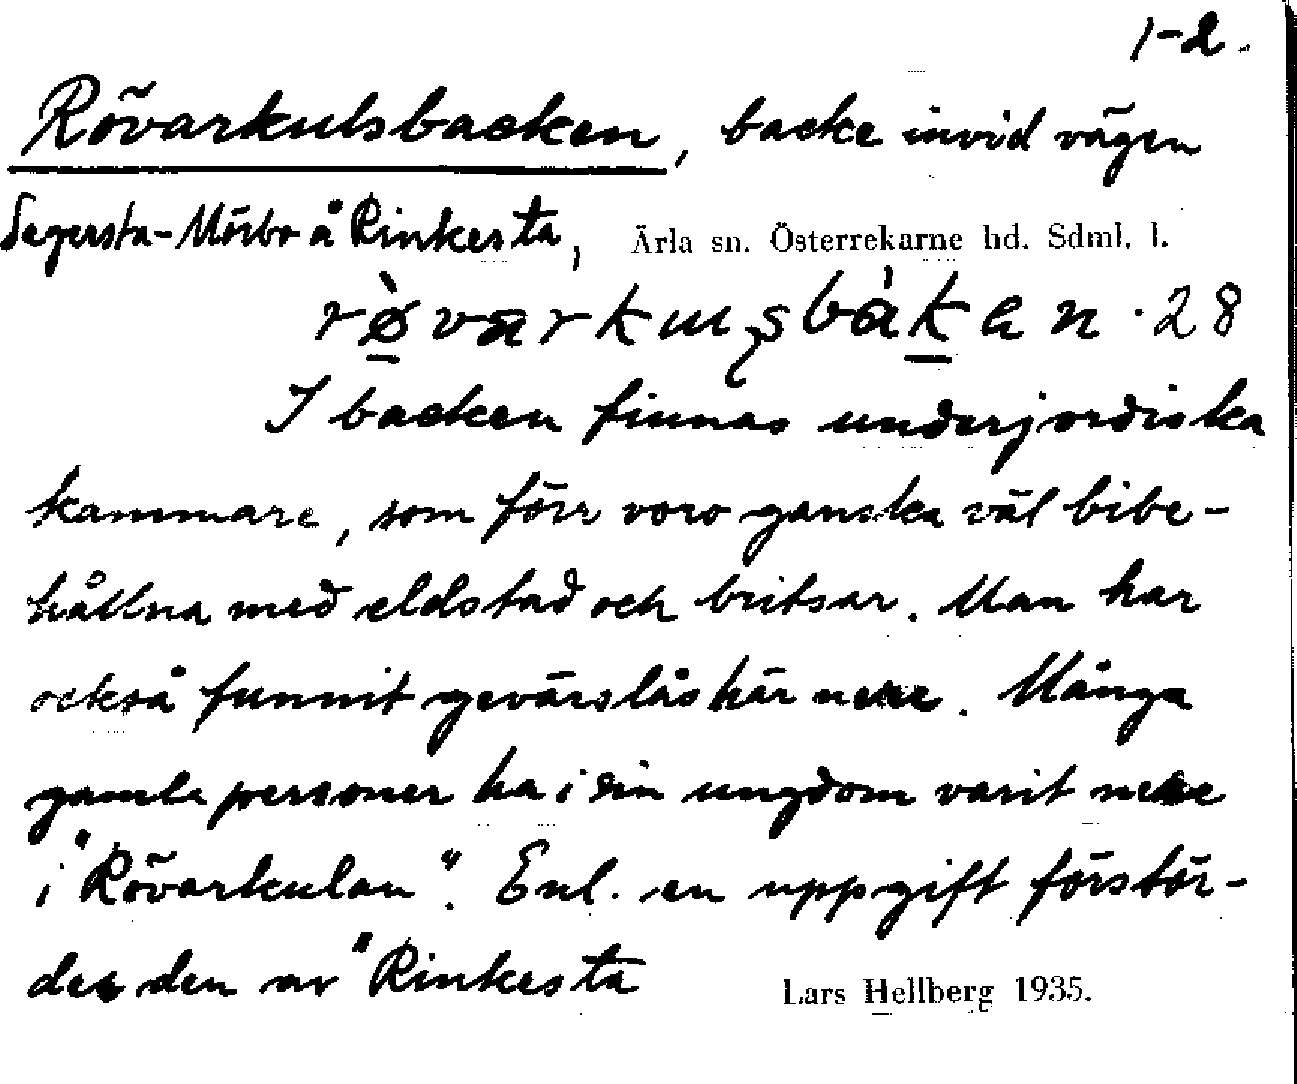 1-2.
Rövarkulsbacken, backe invid vägen
Segersta-Mörbo å Rinkesta, Ärla sn. Österrekarne hd. Sdml. l.
28
I backen finnas underjordiska
kammare, som förr voro ganska väl bibe-
hållna med eldstad och britsar. Man har
också funnit gevärslås här nere. Många
gamla personer ha i sin ungdom varit nere
i "Rövarkulan". Enl. en uppgift förstör-
des den av "Rinkesta
Lars Hellberg 1935.